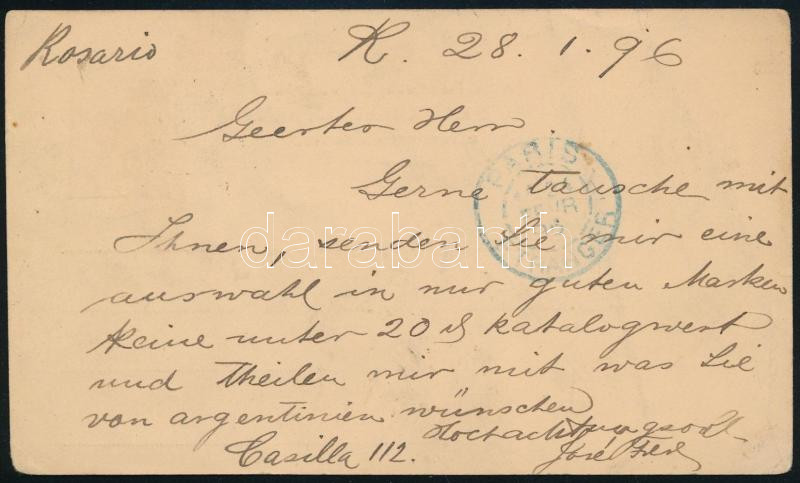 Rosario R. 28. 1. 96
Geerter Herr.
Gerne tausche mit
Ihnen, senden Sie mir eine
auswahl in nur guten Marken
keine unter 20 katalogwert
und theilen mir mit was Sie
von argentinien wünschen
Hochachtungsvoll
Casilla 112. José
PARIS
ETRANGER
darabanth